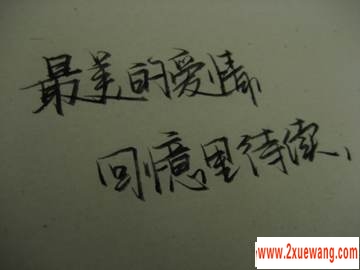 最美的爱情,
回憶里待续、
www.2xuewang.com